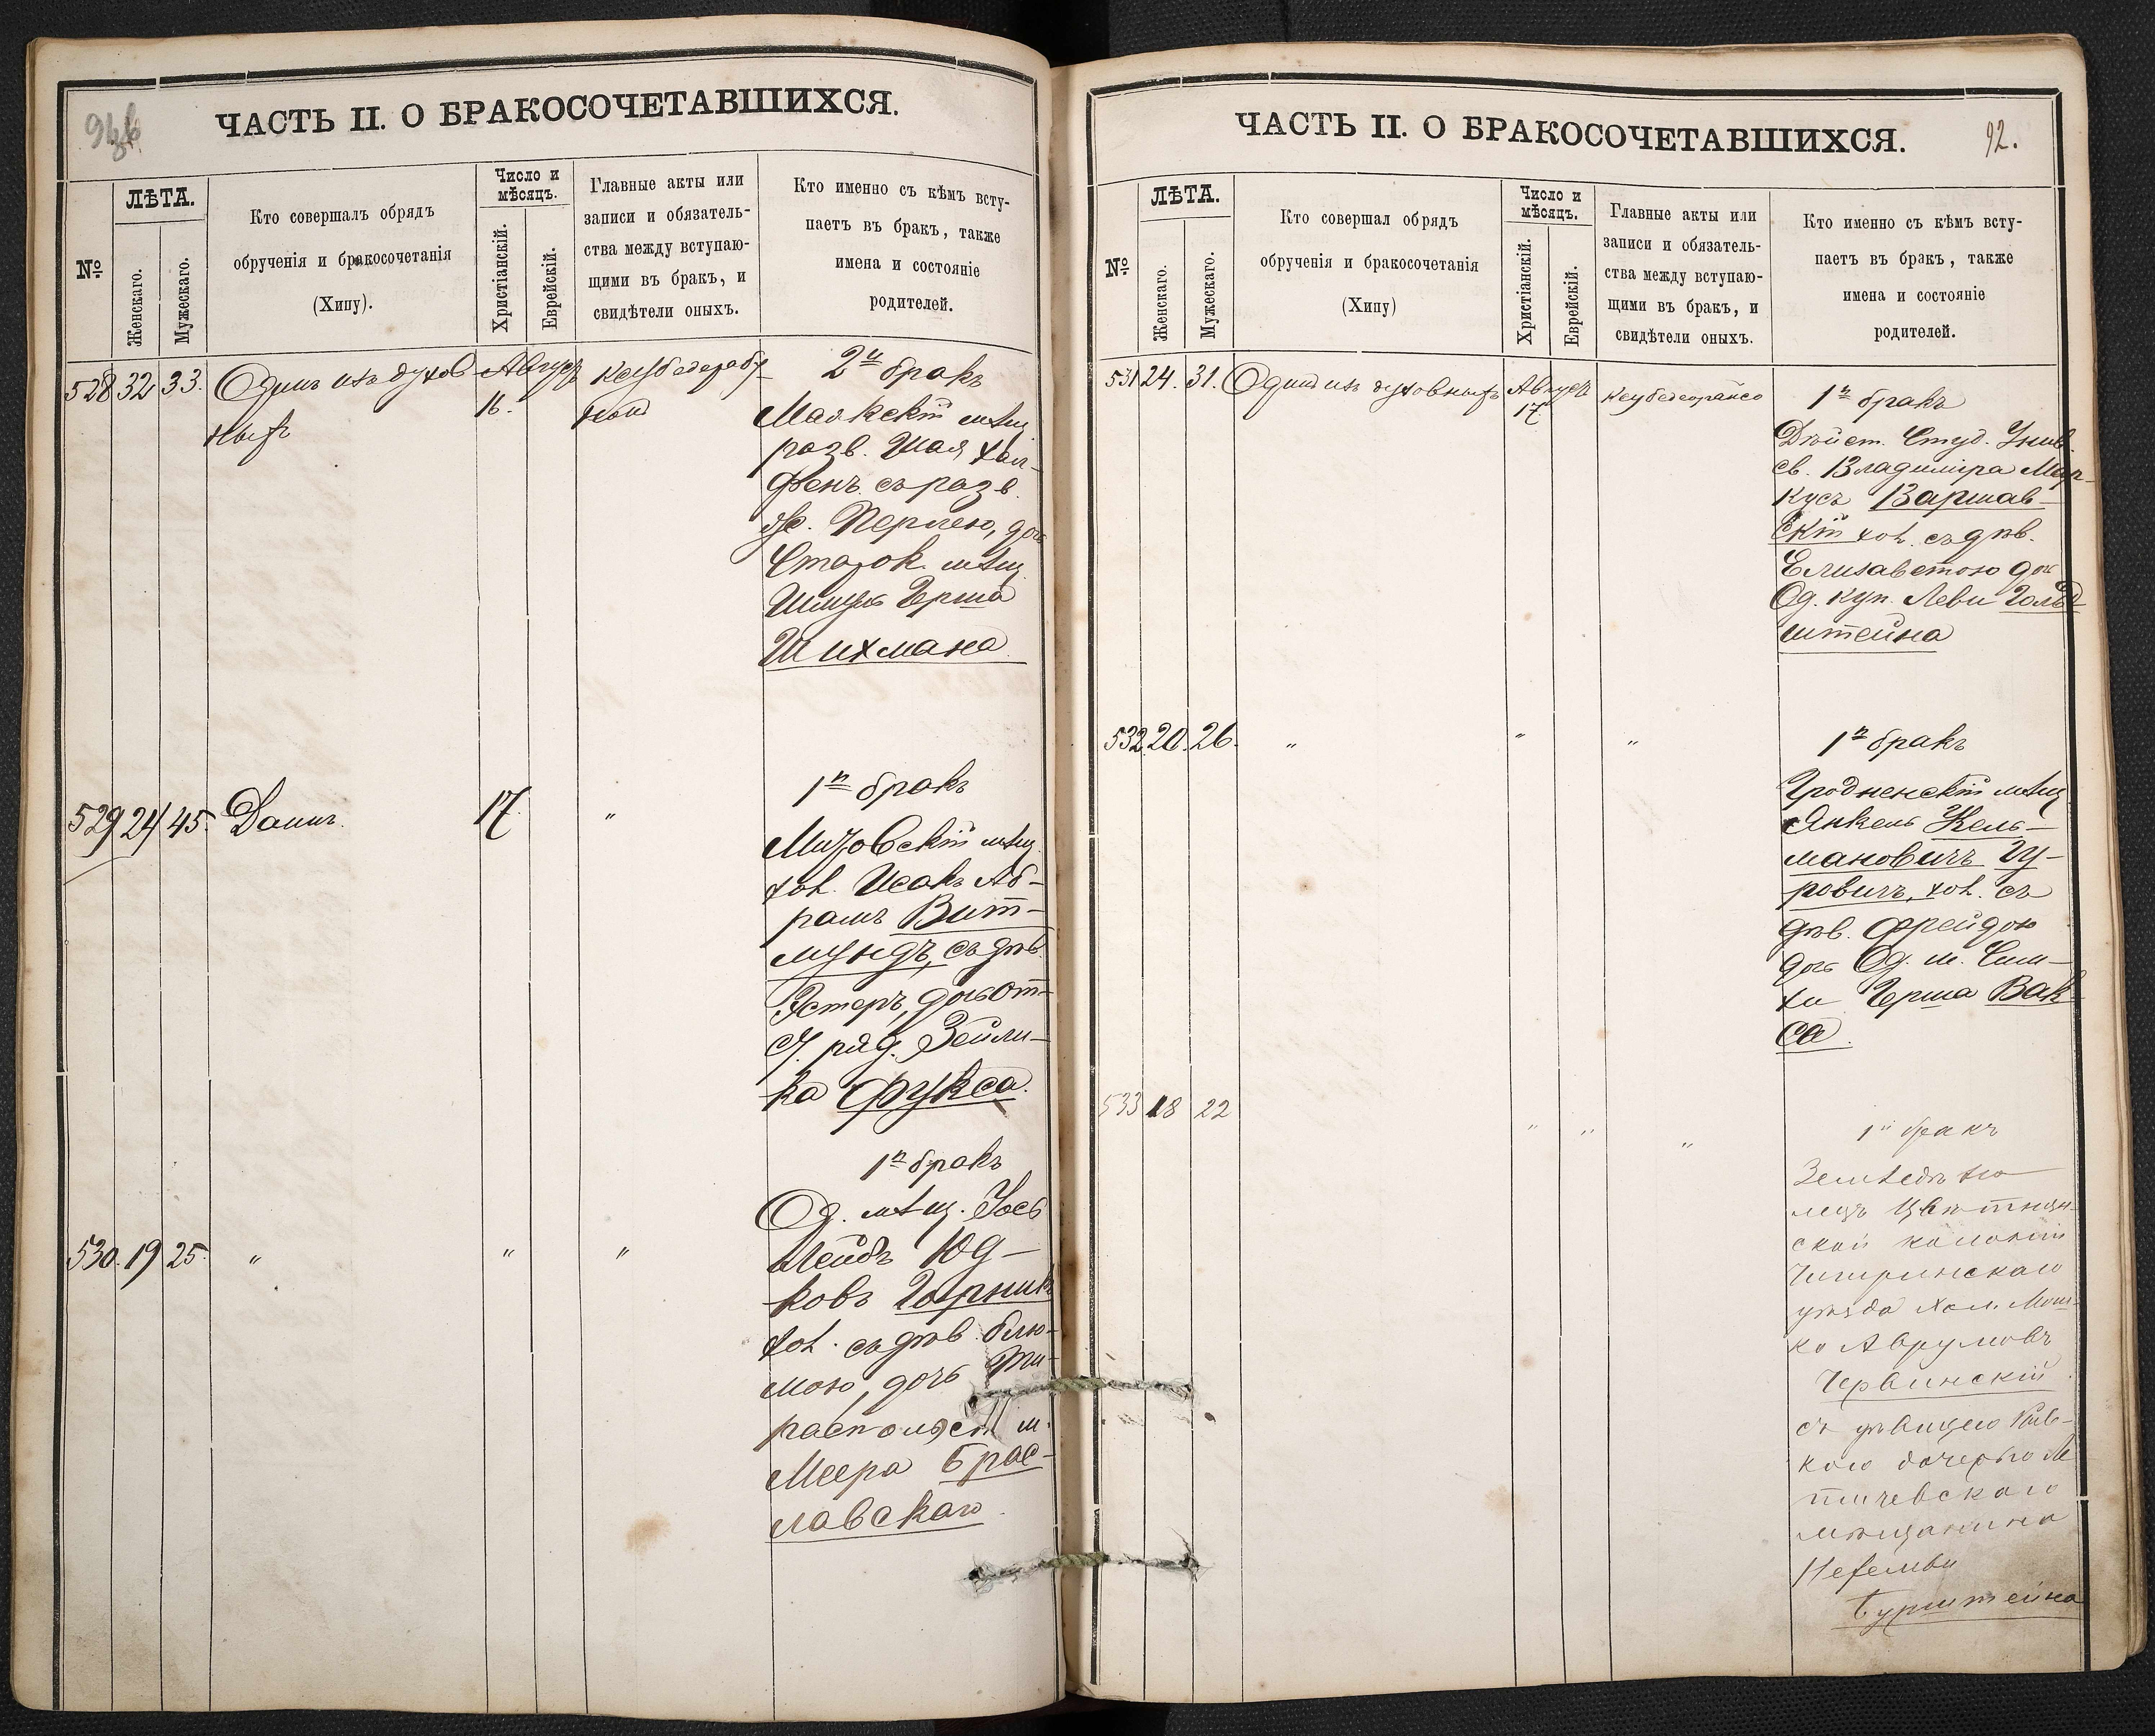 ЧАСТЬ II. О БРАКОСОЧЕТАВШИХСЯ.
№
ЛѢТА.
Женскаго.
Мужескаго.
Кто совершалъ обрядъ
обрученія и бракосочетанія
(Хипу).
Число и
мѣсяцъ.
Христіанскій.
Еврейскій.
Главные акты или
записи и обязатель-
ства между вступаю-
щими въ бракъ, и
свидѣтели оныхъ.
Кто именно съ кѣмъ всту-
паетъ въ бракъ, также
имена и состояніе
родителей.
528 32 33. Одинъ изъ духов Август
ныхъ 16.
2й бракъ
Маякскій мѣщ
разв. Шая
съ разв.
Перлею, дочь
мѣщ
Шмуль Герша
Шихмана
529 24 45. Даинъ. 17 "
1й бракъ
мѣщ.
хол. Исакъ Аб-
рамъ Вит-
мундъ, съ дѣв.
Эстеръ, дочь От-
с. ряд. Зейли-
ка Фукса.
530. 19 25. " " "
1й бракъ
Од. мѣщ. Іось
Лейбъ Юд-
ковъ Горникъ
хол. съ дѣв. Блю-
мою, дочь Ти-
распольск м.
Меера Брас-
лавскаго.
ЧАСТЬ II. О БРАКОСОЧЕТАВШИХСЯ.
92.
№
ЛѢТА.
Женскаго.
Мужескаго.
Кто совершал обрядъ
обрученія и бракосочетанія
(Хипу)
Число и
мѣсяцъ.
Христіанскій.
Еврейскій.
Главные акты или
записи и обязатель-
ства между вступаю-
щими въ бракъ, и
свидѣтели оныхъ.
Кто именно съ кѣмъ всту-
паетъ въ бракъ, также
имена и состояніе
родителей.
531 24. 31. Один изъ духовныхъ Август
17
1й бракъ
Дѣйст. Студ. Унив.
св. Владиміра Мар-
кусъ Варшав-
скій хол. съ дѣв.
Елизаветою дочь
Од. куп. Леви Гольд-
штейна
532. 20. 26. " " "
1й бракъ
Гродненскій мѣщ
Янкель Кель-
мановичъ Гу-
ровичъ, хол. съ
дѣв. Фрейдою
дочь Од. м. Сим-
хи Герша Вак-
са.
533 18 22 " " "
1й бракъ
Земледѣ
лецъ
ской колоніи
Чигиринскаго
уѣзда хол. Мош-
ко Аврумовъ
Червинскій
съ дѣвицею Рив-
кою дочерью Ле
тичевскаго
мѣщанина
Нехемьи
Бурштейна